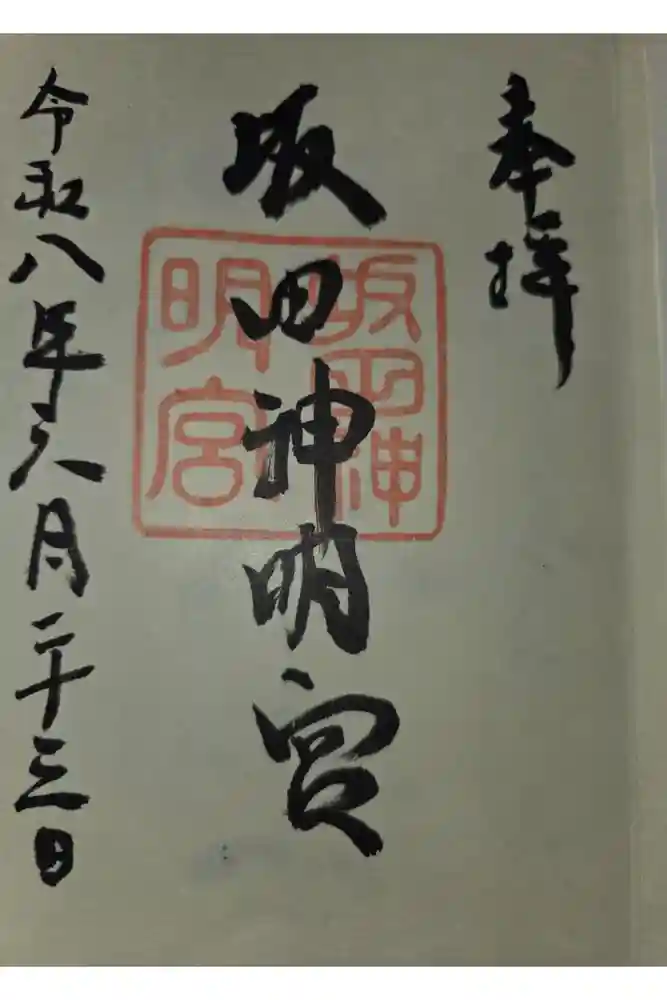 奉拝
坂田神明宮
坂田神
明宮
令和八年六月二十三日